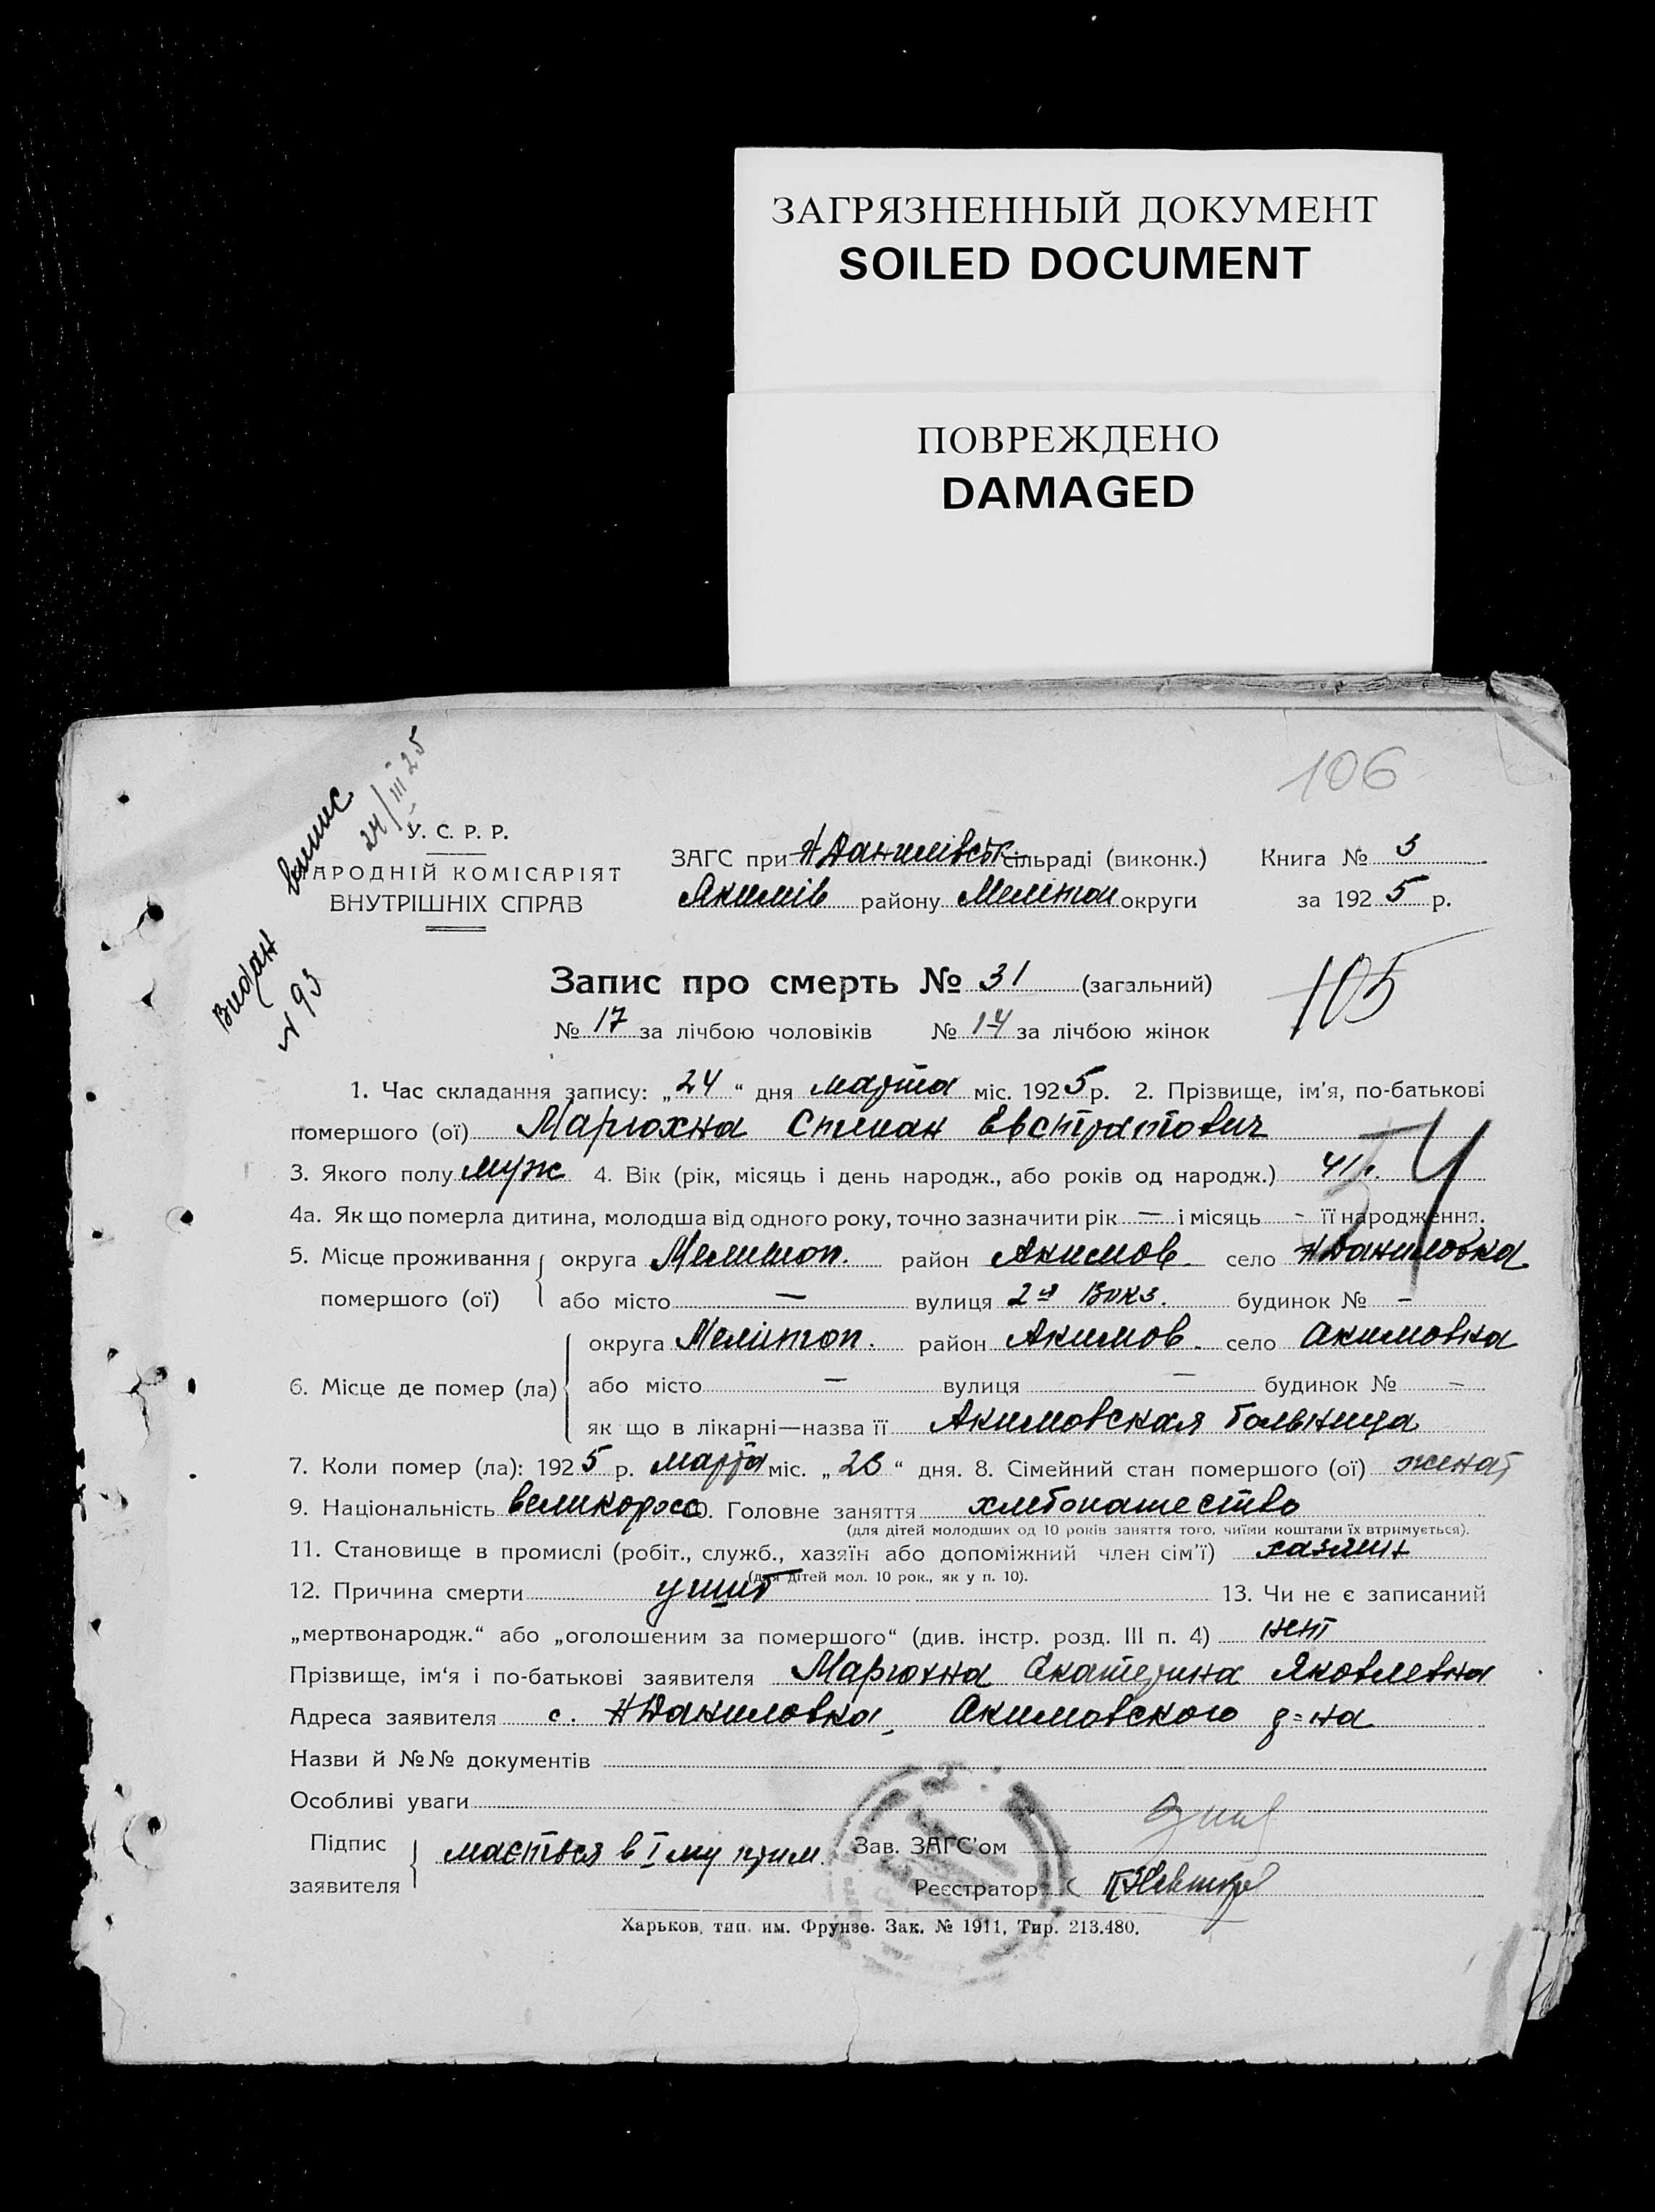 ЗАГРЯЗНЕННЫЙ ДОКУМЕНТ
SOILED DOCUMENT
ПОВРЕЖДЕНО
DAMAGED
106
Видан випис
№ 93 24/III 25
У. С. Р. Р.
НАРОДНІЙ КОМІСАРІЯТ
ВНУТРІШНІХ СПРАВ
ЗАГС при Н Данилівськ. сільраді (виконк.) Книга № 3
Якимів району Мелітоп округи за 1925 р.
Запис про смерть № 31 (загальний)
105
№ 17 за лічбою чоловіків № 14 за лічбою жінок
1. Час складання запису: „24“ дня марта міс. 1925 р. 2. Прізвище, ім'я, по-батькові
помершого (ої) Марюхна Степан Евстратович
3. Якого полу муж 4. Вік (рік, місяць і день народж., або років од народж.) 41 г.
54
4а. Як що померла дитина, молодша від одного року, точно зазначити рік — і місяць - її народження.
5. Місце проживання округа Мелитоп. район Акимов. село Н Даниловка
помершого (ої) або місто — вулиця 2я будинок № -
округа Мелітоп. район Акимов. село Акимовка
6. Місце де помер (ла) або місто — вулиця — будинок № -
як що в лікарні—назва її Акимовская больница
7. Коли помер (ла): 1925 р. марта міс. „23“ дня. 8. Сімейний стан помершого (ої) женат
9. Національність великоросс 10. Головне заняття хлебопашество
(для дітей молодших од 10 років заняття того, чиїми коштами їх втримується).
11. Становище в промислі (робіт., служб., хазяїн або допоміжний член сім'ї) хазяин
(для дітей мол. 10 рок., як у п. 10).
12. Причина смерти ушиб 13. Чи не є записаний
„мертвонародж.“ або „оголошеним за помершого“ (див. інстр. розд. III п. 4) нет
Прізвище, ім'я і по-батькові заявителя Марюхна Екатерина Яковлевна
Адреса заявителя с. Н Даниловка, Акимовского р=на
Назви й №№ документів
Особливі уваги
Підпис
заявителя мається в I му прим. Зав. ЗАГС'ом
Реєстратор
Харьков, тип. им. Фрунзе. Зак. № 1911, Тир. 213.480.